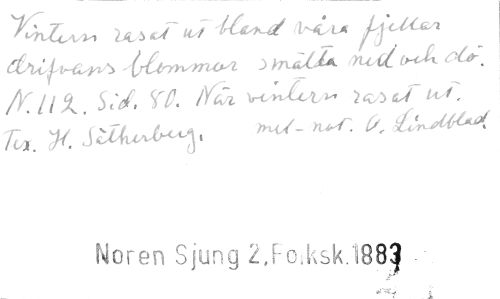 Vintern rasat ut bland våra fjellar
drifvans blommor smälta ned och dö.
N.112. Sid. 80. När vintern rasat ut.
Tex. H. Sätherberg. mel-not. O. Lindblad.
Noren Sjung 2, Folksk. 1883